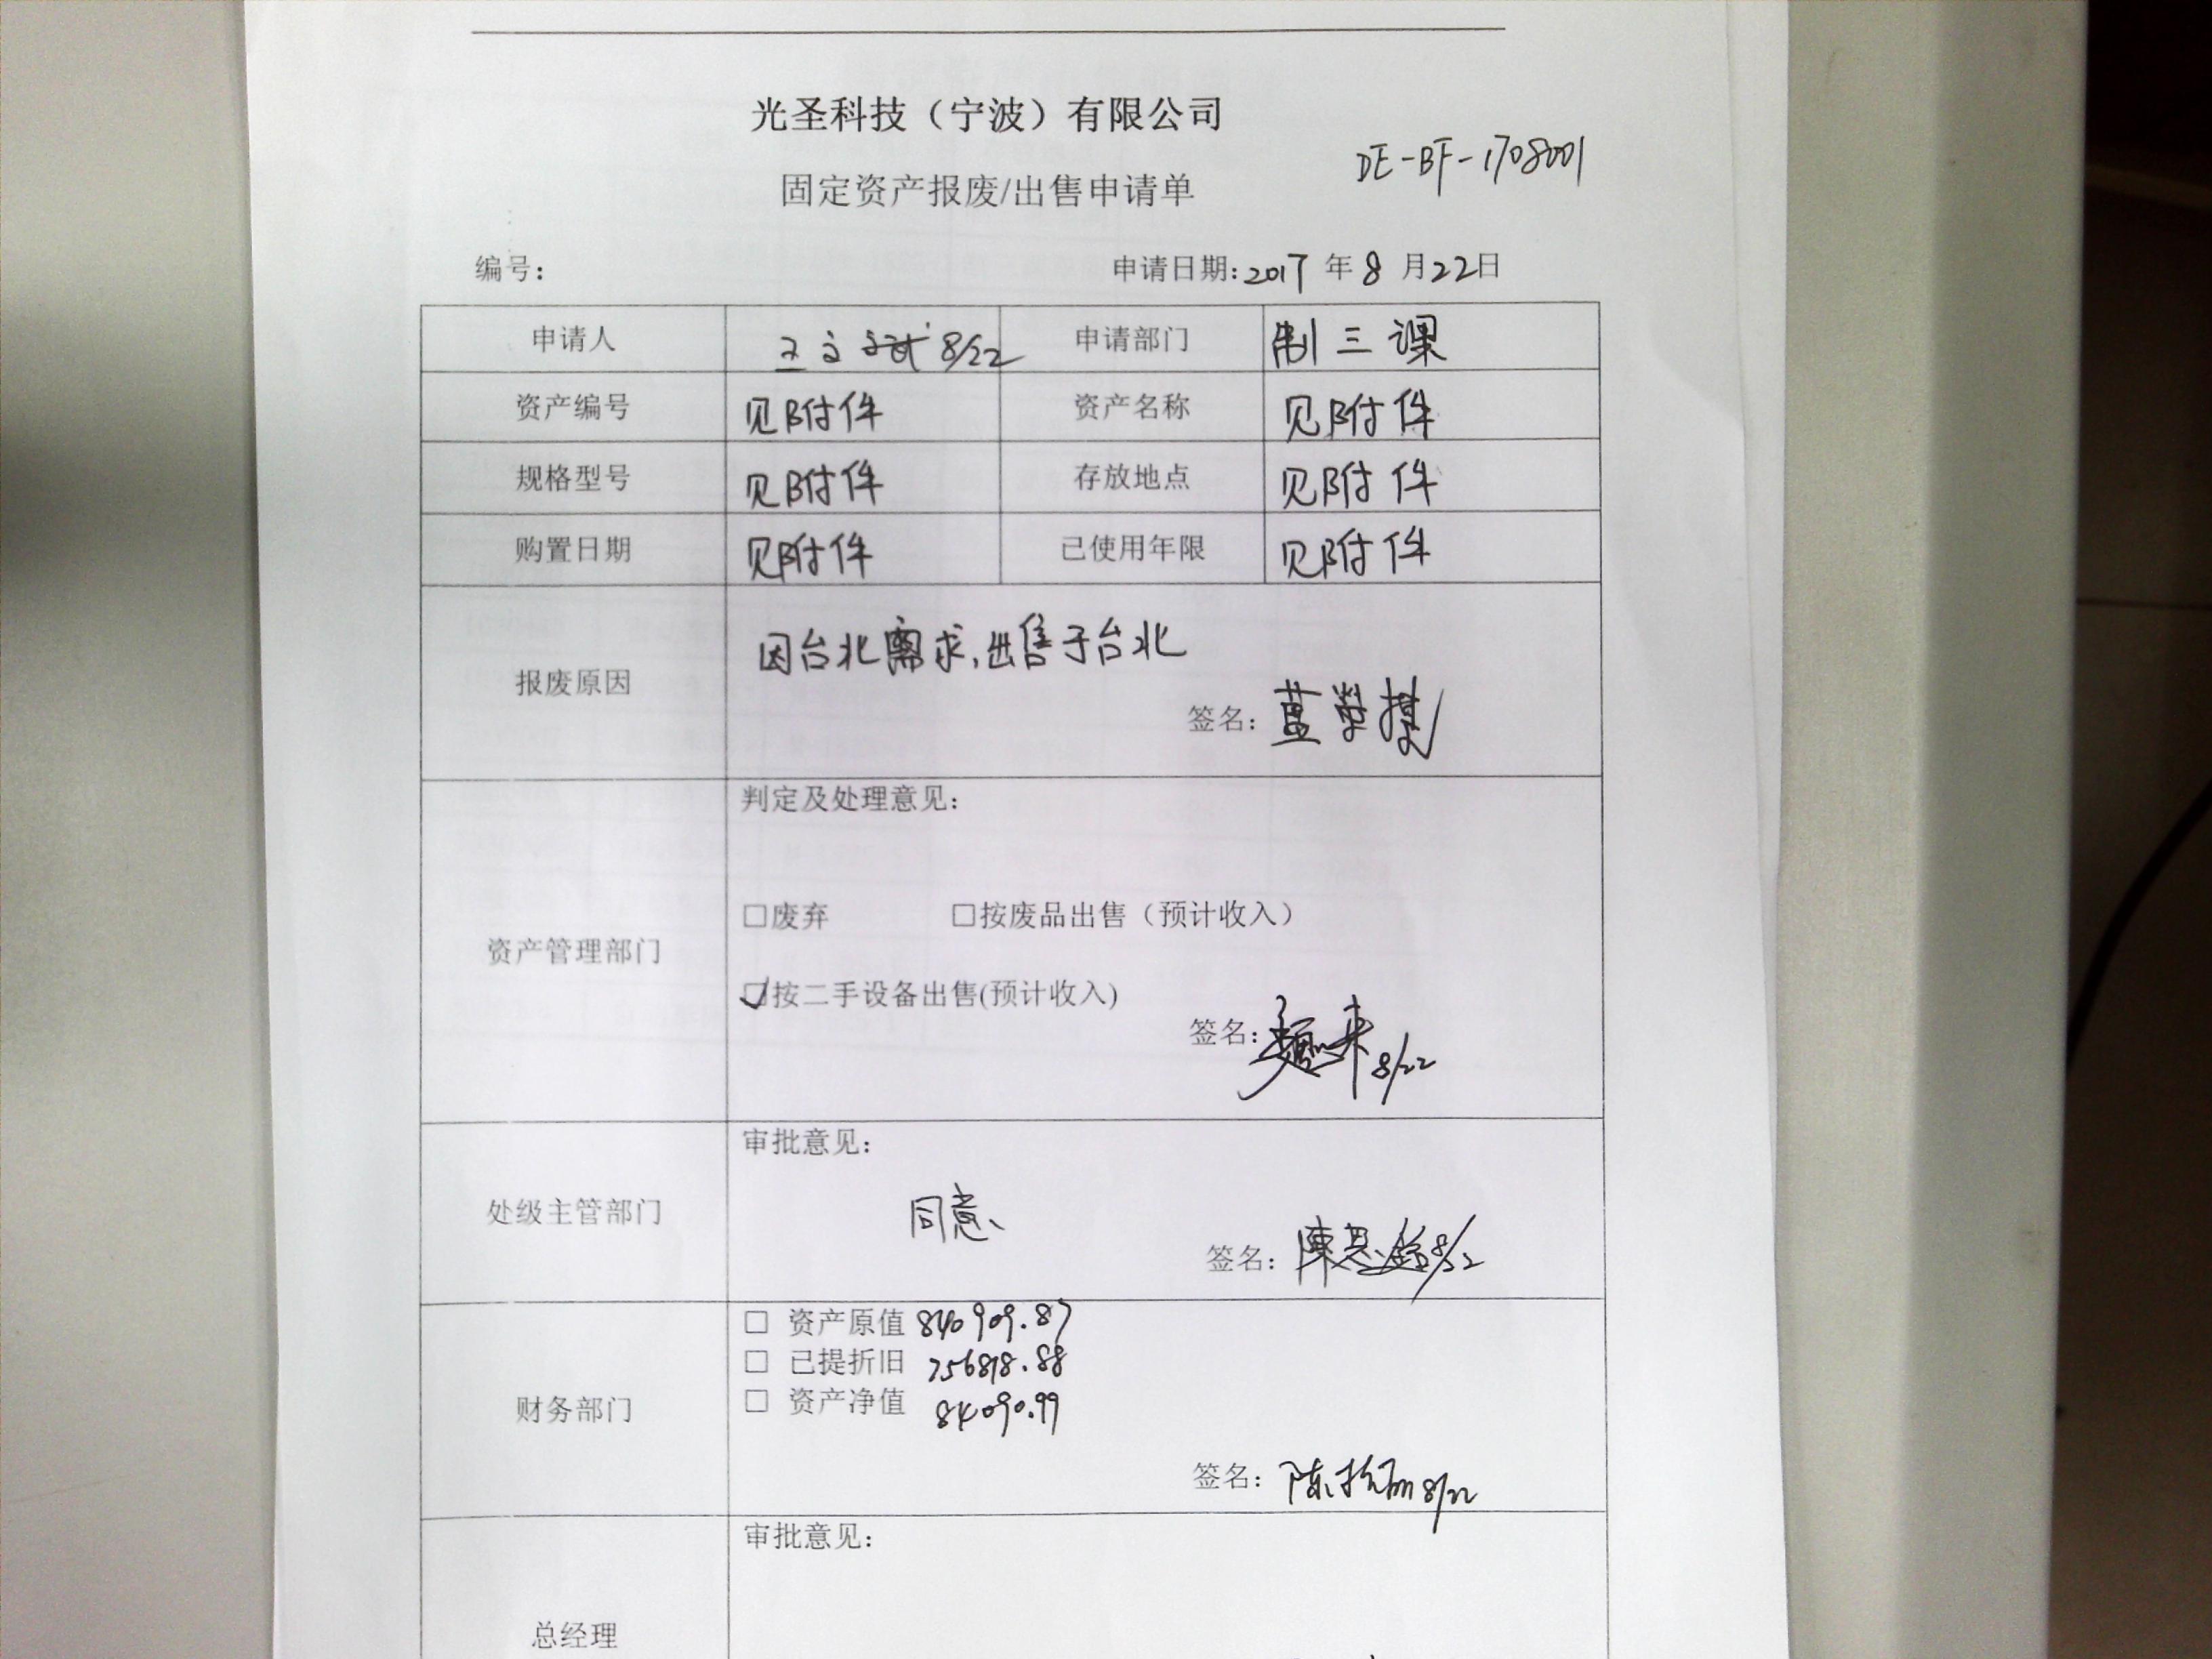 光圣科技（宁波）有限公司
DE-BF-1708001
固定资产报废/出售申请单
编号： 申请日期:2017 年 8 月22日
申请人 8/22 申请部门 制三课
资产编号 见附件 资产名称 见附件
规格型号 见附件 存放地点 见附件
购置日期 见附件 已使用年限 见附件
报废原因 因台北需求,出售于台北
签名：
资产管理部门 判定及处理意见：
□废弃 □按废品出售（预计收入）
☑按二手设备出售(预计收入)
签名： 8/22
处级主管部门 审批意见：
同意、
签名：陳 8/22
财务部门 □ 资产原值 840909.87
□ 已提折旧 756818.88
□ 资产净值 84090.99
签名：陈 8/22
总经理 审批意见：